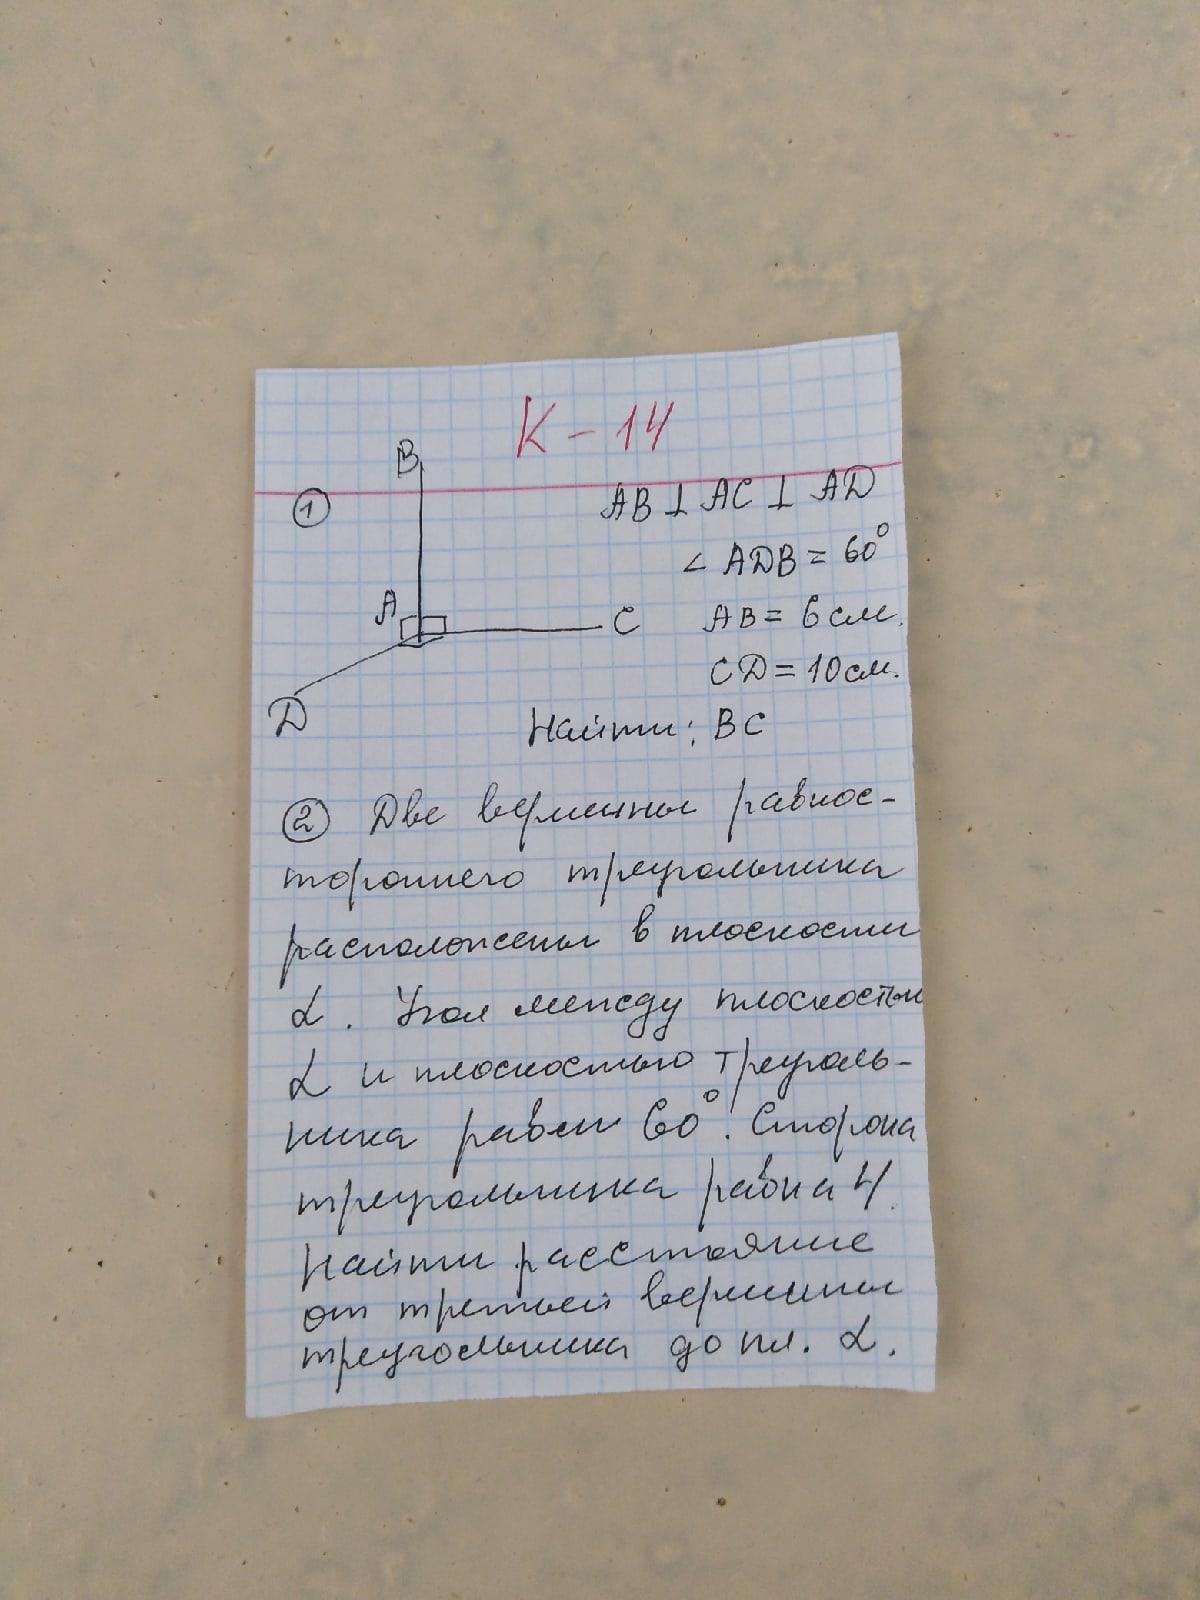 К - 14
B
①
AB ⊥ AC ⊥ AD
∠ ADB = 60°
A
C
AB = 6 см.
CD = 10 см.
D
Найти: BC
② Две вершины равнос-
тороннего треугольника
расположены в плоскости
α. Угол между плоскостью
α и плоскостью треуголь-
ника равен 60°. Сторона
треугольника равна 4.
Найти расстояние
от третьей вершины
треугольника до пл. α.